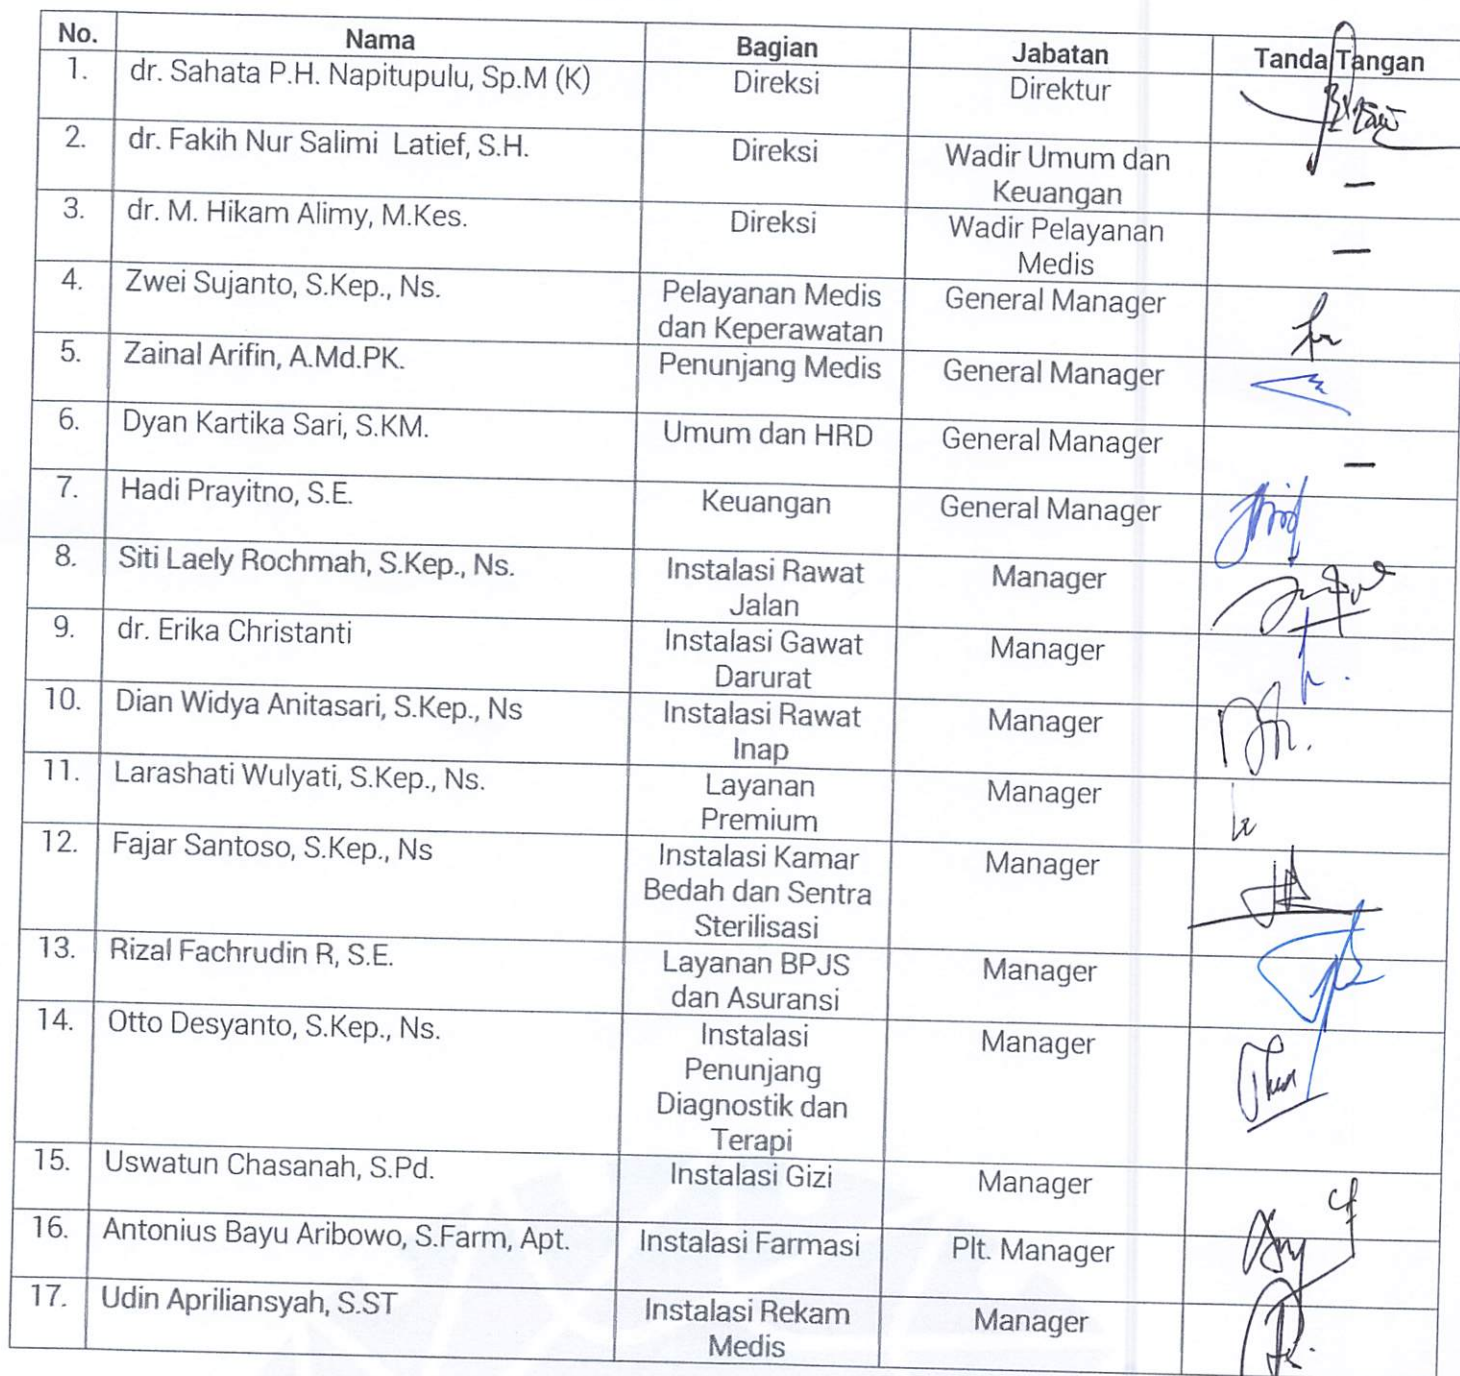 No. Nama Bagian Jabatan Tanda Tangan
1. dr. Sahata P.H. Napitupulu, Sp.M (K) Direksi Direktur
2. dr. Fakih Nur Salimi Latief, S.H. Direksi Wadir Umum dan
Keuangan
–
3. dr. M. Hikam Alimy, M.Kes. Direksi Wadir Pelayanan
Medis
–
4. Zwei Sujanto, S.Kep., Ns. Pelayanan Medis General Manager
dan Keperawatan
5. Zainal Arifin, A.Md.PK. Penunjang Medis General Manager
6. Dyan Kartika Sari, S.KM. Umum dan HRD General Manager
–
7. Hadi Prayitno, S.E. Keuangan General Manager
8. Siti Laely Rochmah, S.Kep., Ns. Instalasi Rawat Manager
Jalan
9. dr. Erika Christanti Instalasi Gawat Manager
Darurat
10. Dian Widya Anitasari, S.Kep., Ns Instalasi Rawat Manager
Inap
11. Larashati Wulyati, S.Kep., Ns. Layanan Manager
Premium
12. Fajar Santoso, S.Kep., Ns Instalasi Kamar Manager
Bedah dan Sentra
Sterilisasi
13. Rizal Fachrudin R, S.E. Layanan BPJS Manager
dan Asuransi
14. Otto Desyanto, S.Kep., Ns. Instalasi Manager
Penunjang
Diagnostik dan
Terapi
15. Uswatun Chasanah, S.Pd. Instalasi Gizi Manager
16. Antonius Bayu Aribowo, S.Farm, Apt. Instalasi Farmasi Plt. Manager
17. Udin Apriliansyah, S.ST Instalasi Rekam Manager
Medis